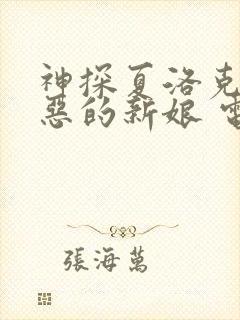 神探夏洛克
惡的新娘 電
張海萬